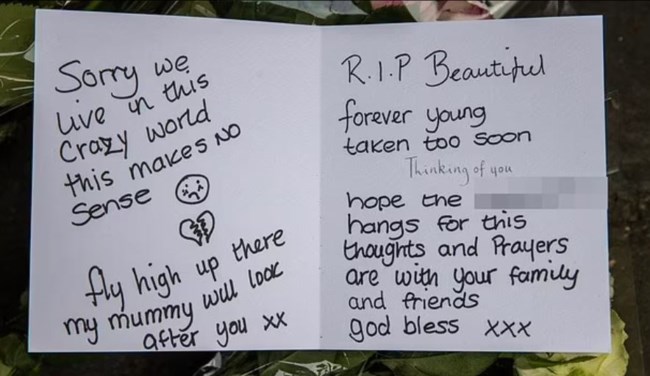 Sorry we
live in this
crazy world
this makes NO
sense
fly high up there
my mummy will look
after you xx
R.I.P Beautiful
forever young
taken too soon
Thinking of you
hope the
hangs for this
thoughts and Prayers
are with your family
and friends
god bless xxx